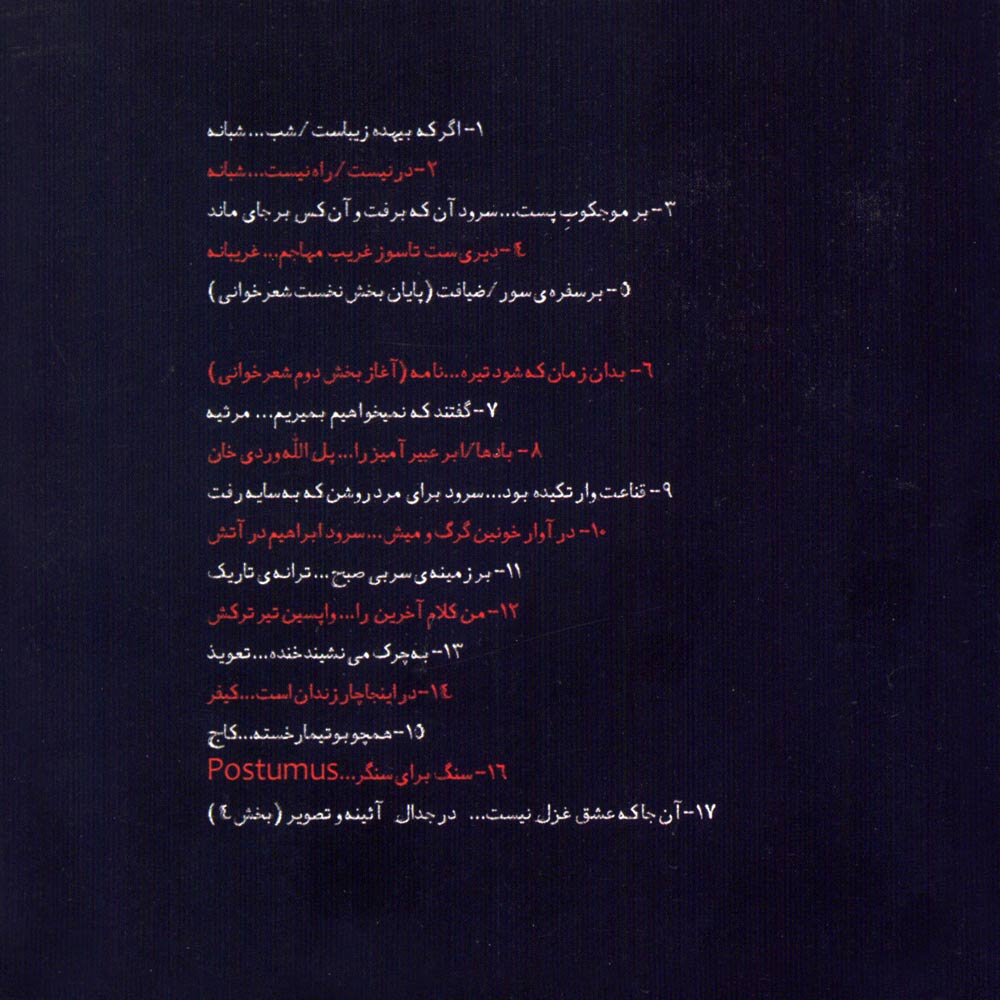 ۱- اگر که بیهده زیباست / شب... شبانه
۲- در نیست / راه نیست... شبانه
۳- بر موجکوبِ پست... سرود آن که برفت و آن کس بر جای ماند
٤- دیری‌ست تا سوز غریب مهاجم... غریبانه
٥- بر سفره‌ی سور / ضیافت (پایان بخش نخست شعرخوانی)
٦- بدان زمان که شود تیره... نامه (آغاز بخش دوم شعرخوانی)
۷- گفتند که نمیخواهیم بمیریم... مرثیه
۸- بادها / ابر عبیر آمیز را... پل الله‌وردی خان
۹- قناعت وار تکیده بود... سرود برای مرد روشن که به سایه رفت
۱۰- در آوار خونین گرگ و میش... سرود ابراهیم در آتش
۱۱- بر زمینه‌ی سربی صبح... ترانه‌ی تاریک
۱۲- من کلامِ آخرین را... واپسین تیر ترکش
۱۳- به چرک می نشیند خنده... تعویذ
۱٤- در اینجا چار زندان است... کیفر
۱٥- همچو بوتیمار خسته... کاج
۱٦- سنگ برای سنگر... Postumus
۱۷- آن جا که عشق غزل نیست... در جدال آئینه و تصویر (بخش ٤)